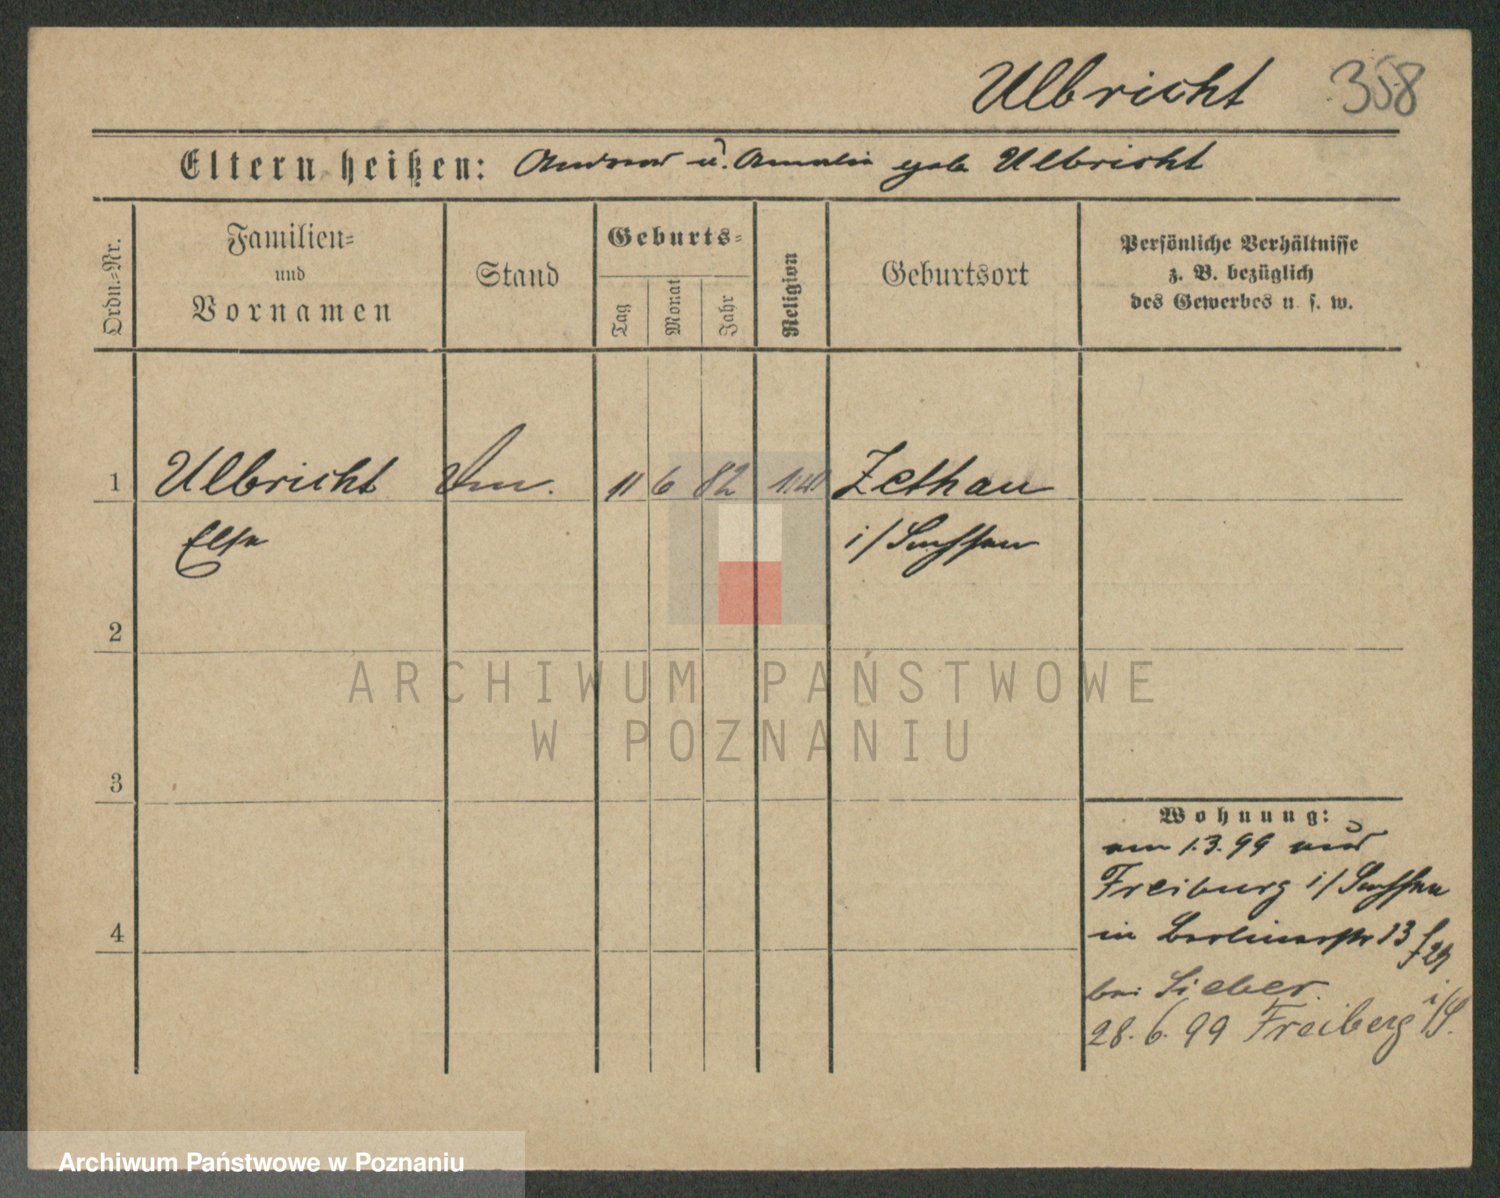 Ulbricht 358
Eltern heißen: Andreas u. Amalie geb Ulbricht
Ordn.=Nr.
Familien=
und
Vornamen
Stand
Geburts=
Tag
Monat
Jahr
Religion
Geburtsort
Persönliche Verhältnisse
z. B. bezüglich
des Gewerbes u. s. w.
1 Ulbricht 11 6 82 Zethau
Elsa i/Sachsen
2
ARCHIWUM PAŃSTWOWE
W POZNANIU
3
Wohnung:
am 1.3.99 aus
Freiburg i/Sachsen
in Berlinerstr 13
bei Sieber.
28.6.99 Freiberg i/S.
4
Archiwum Państwowe w Poznaniu